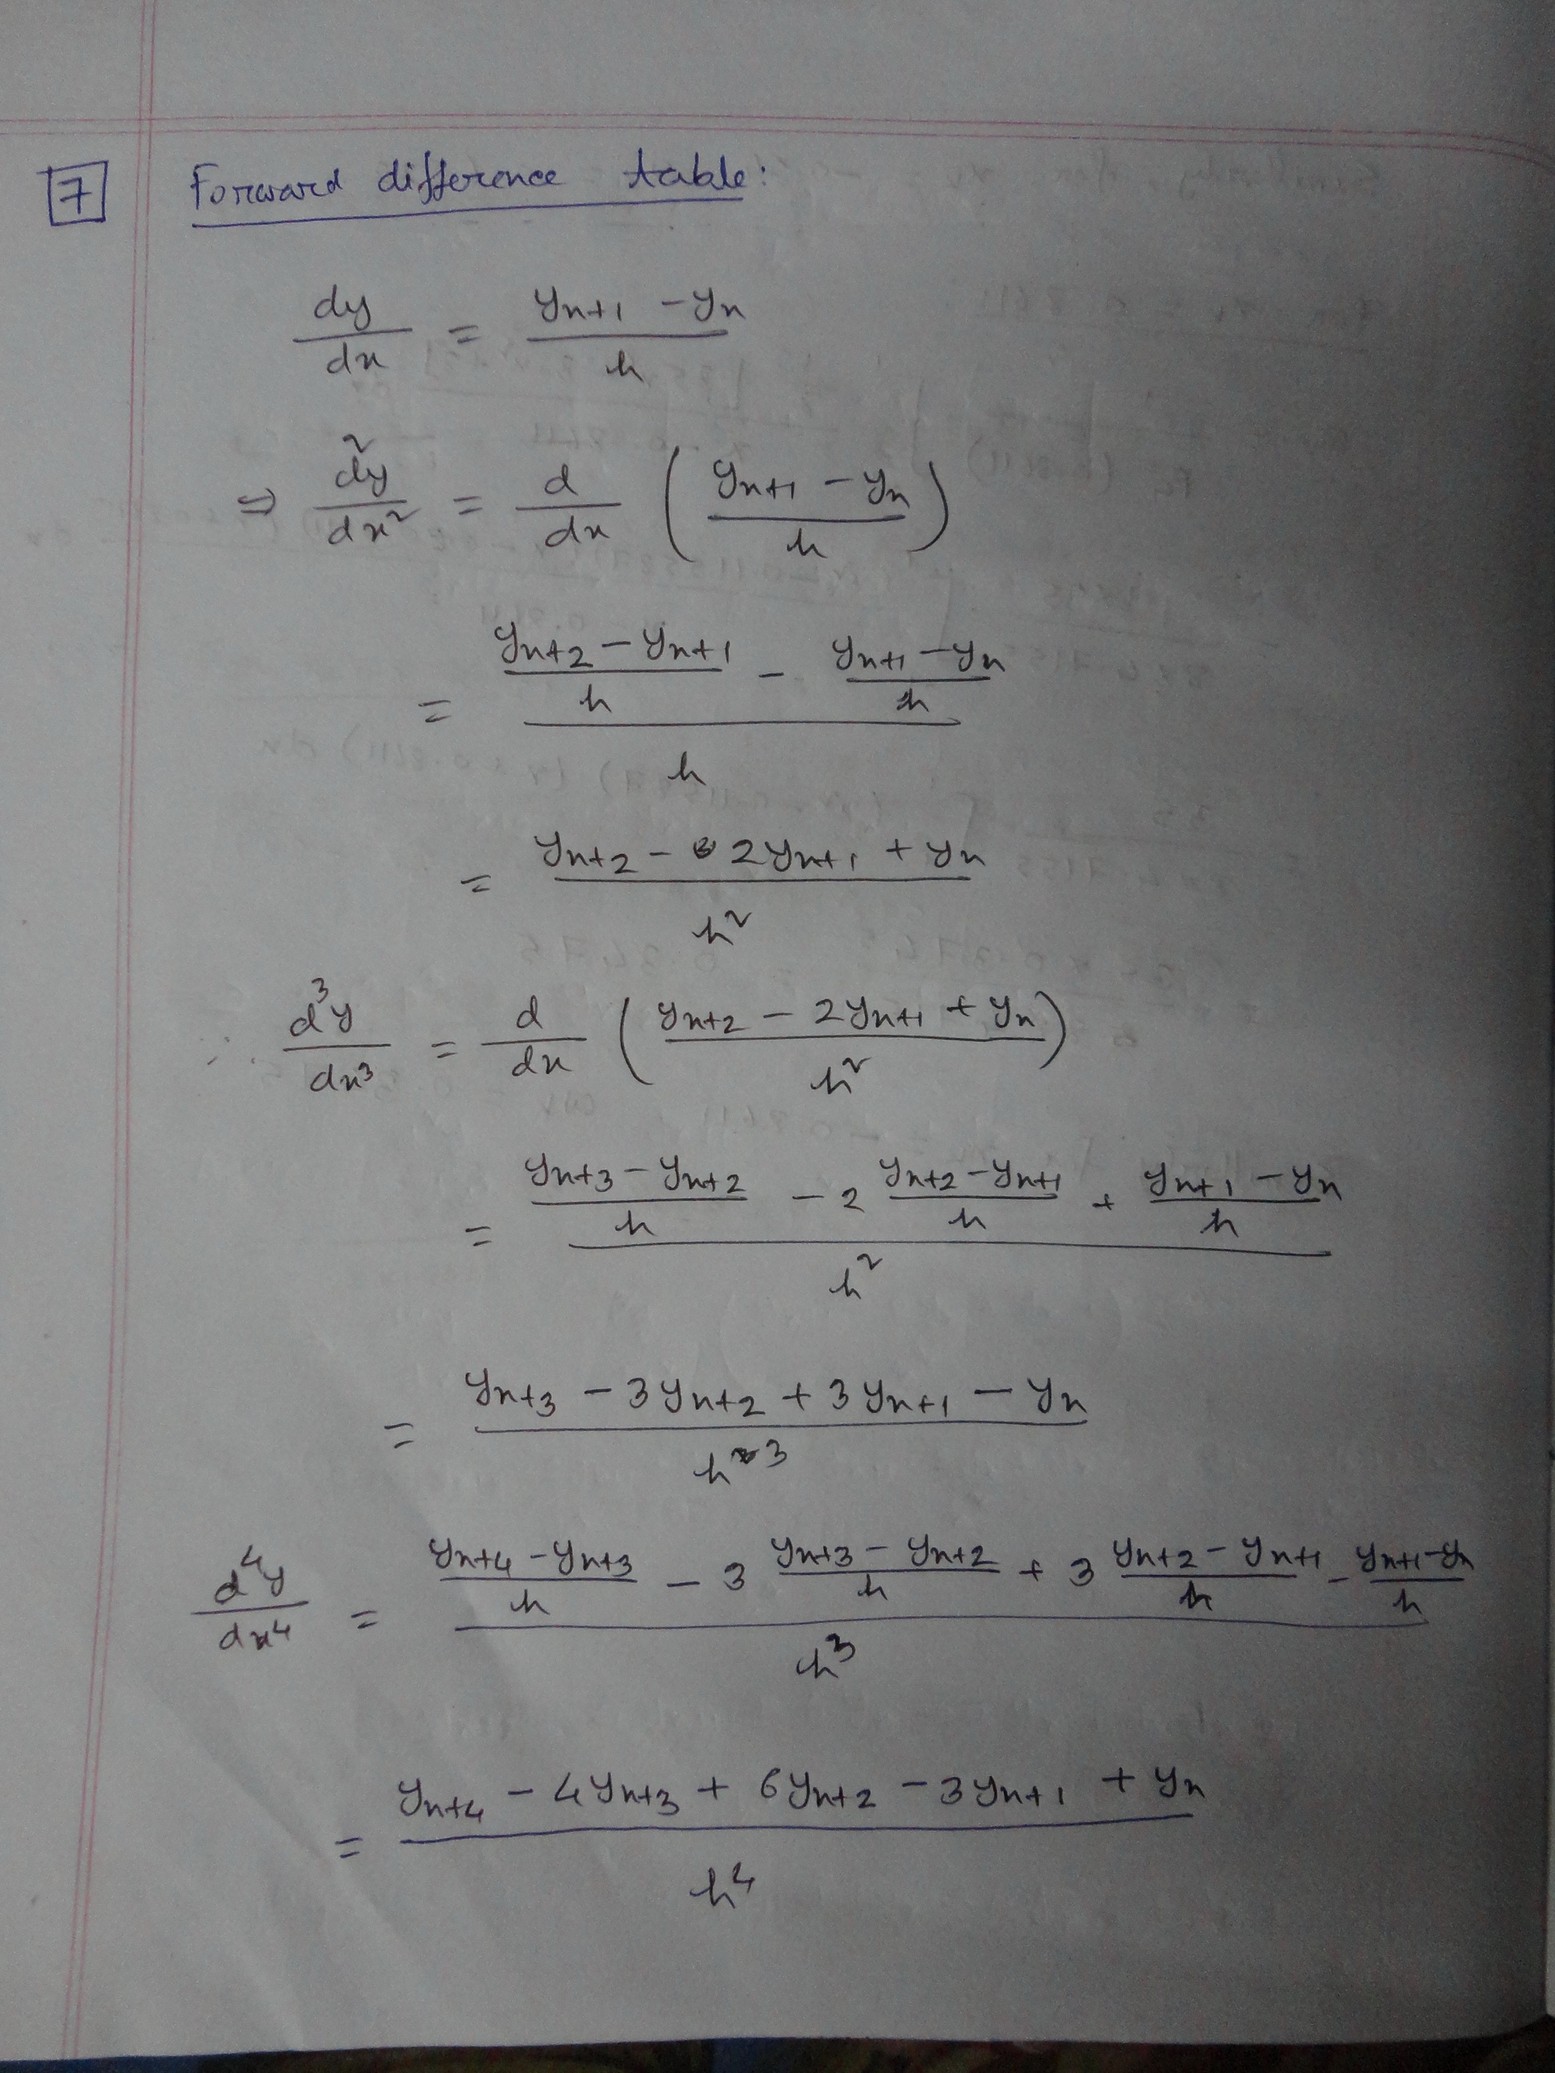 7 Forward difference table:
dy/dx = (yn+1 - yn)/h
⇒ d²y/dx² = d/dx ((yn+1 - yn)/h)
= ((yn+2 - yn+1)/h - (yn+1 - yn)/h)/h
= (yn+2 - 2yn+1 + yn)/h²
∴ d³y/dx³ = d/dx ((yn+2 - 2yn+1 + yn)/h²)
= ((yn+3 - yn+2)/h - 2 (yn+2 - yn+1)/h + (yn+1 - yn)/h)/h²
= (yn+3 - 3yn+2 + 3yn+1 - yn)/h³
d⁴y/dx⁴ = ((yn+4 - yn+3)/h - 3 (yn+3 - yn+2)/h + 3 (yn+2 - yn+1)/h - (yn+1 - yn)/h)/h³
= (yn+4 - 4yn+3 + 6yn+2 - 3yn+1 + yn)/h⁴